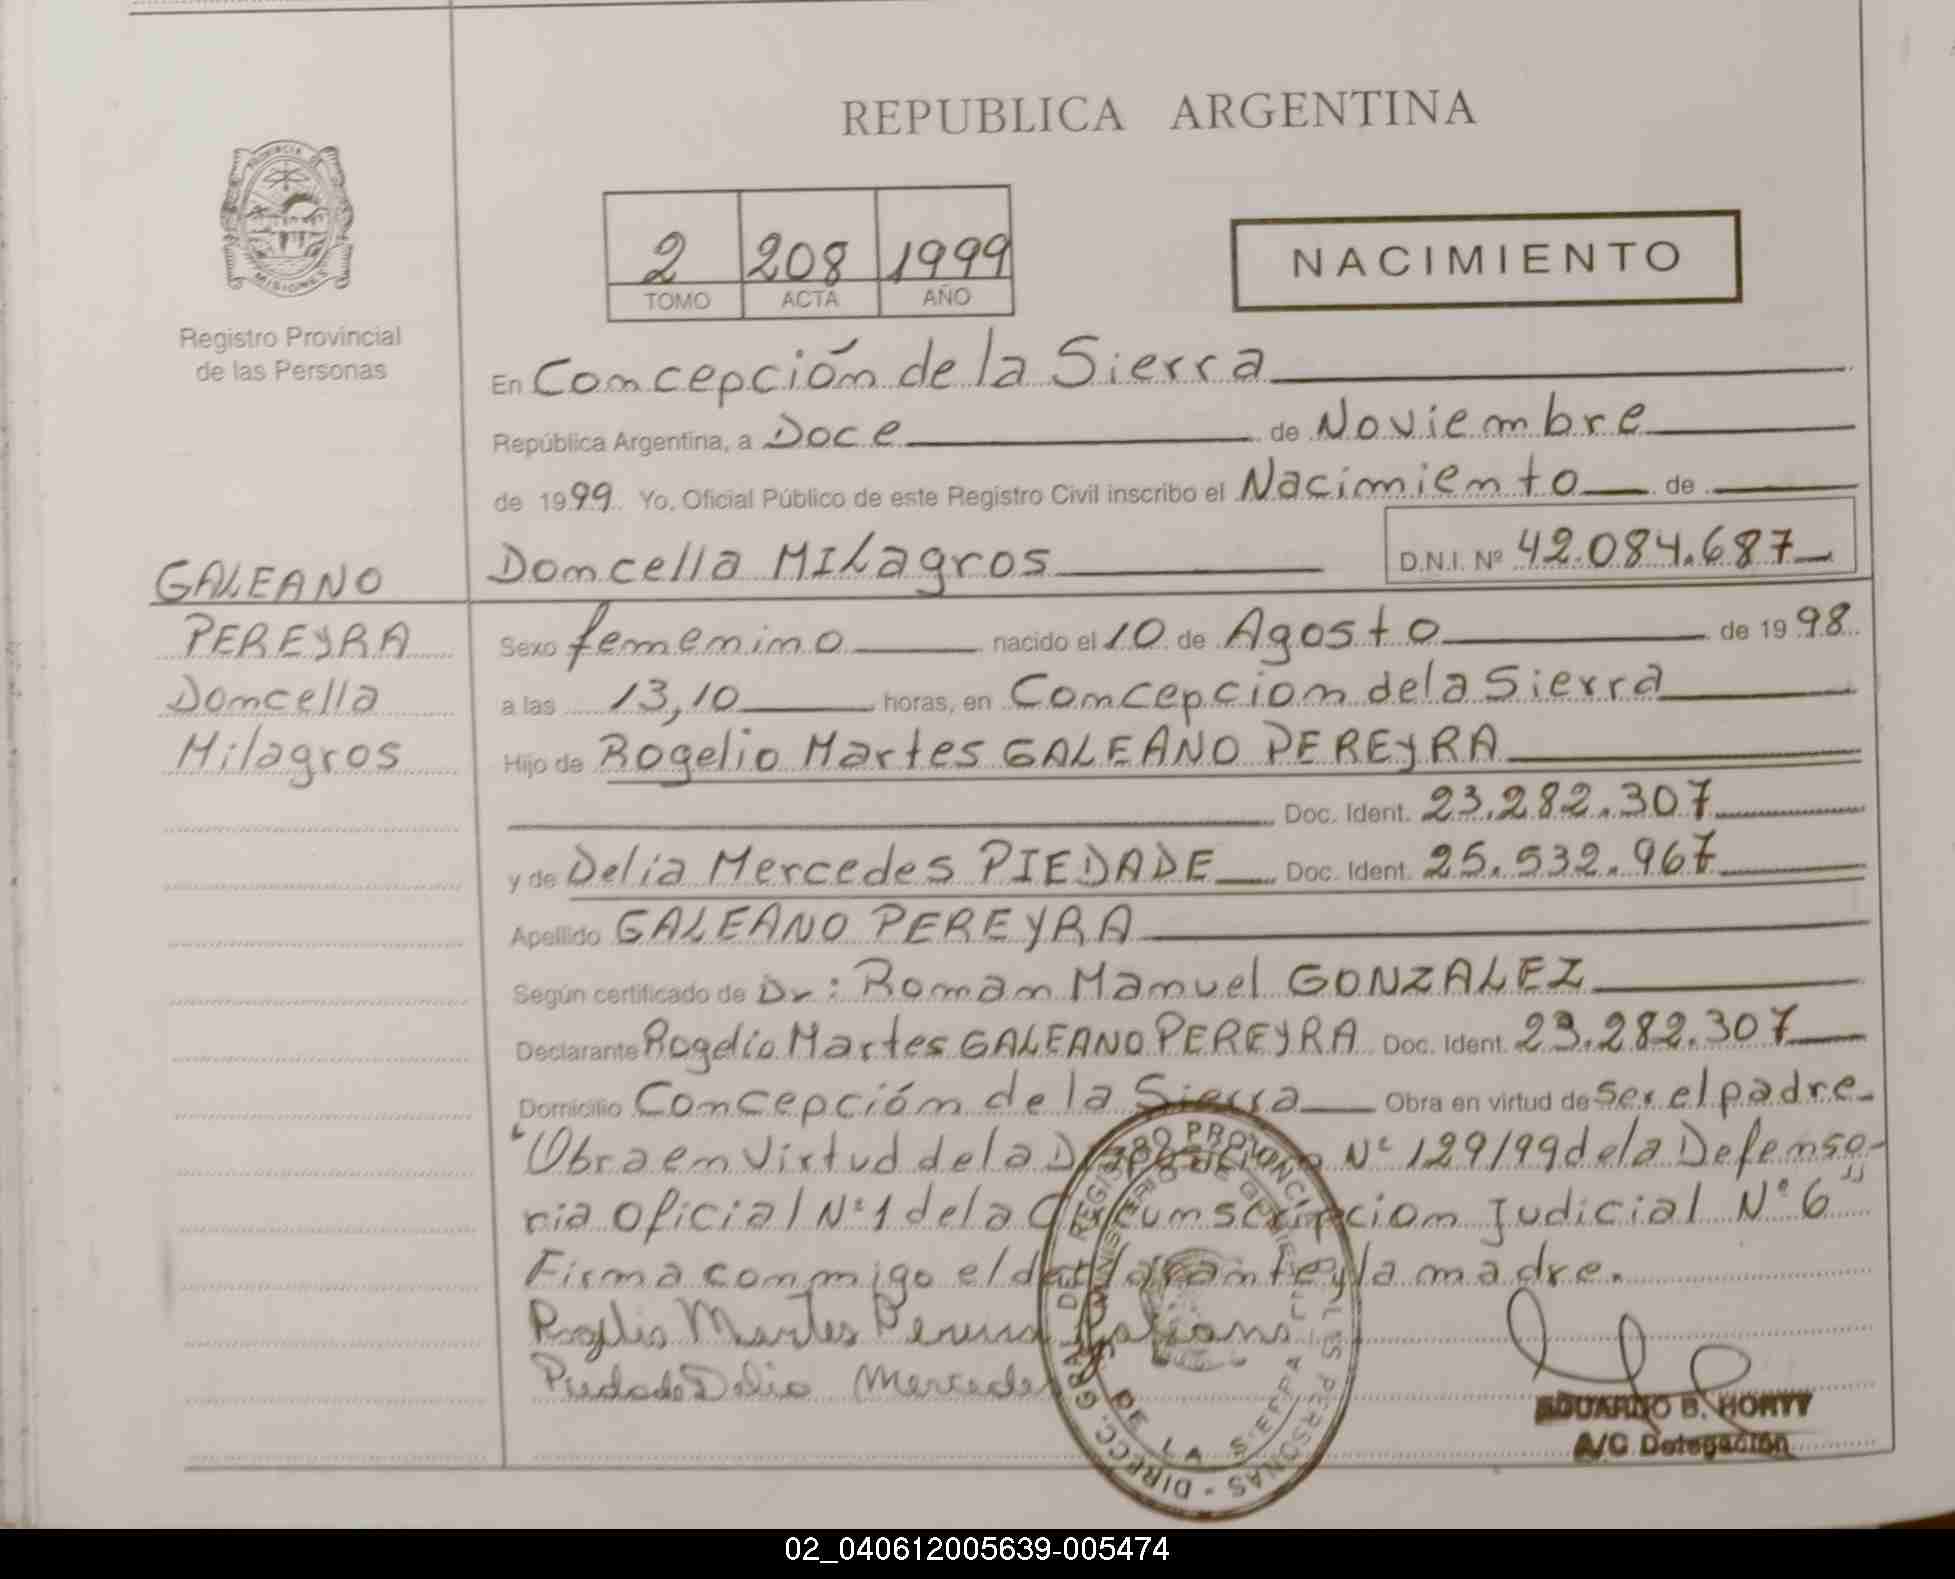 REPUBLICA ARGENTINA
PROVINCIA DE MISIONES
Registro Provincial
de las Personas
2 208 1999
TOMO ACTA AÑO
NACIMIENTO
En Concepción de la Sierra
República Argentina, a Doce de Noviembre
de 1999. Yo, Oficial Público de este Registro Civil inscribo el Nacimiento de
Doncella MILagros D.N.I. Nº 42.084.687
GALEANO
PEREYRA
Doncella
Milagros
Sexo femenino nacido el 10 de Agosto de 1998
a las 13,10 horas, en Concepcion de la Sierra
Hijo de Rogelio Martes GALEANO PEREYRA
Doc. Ident. 23.282.307
y de Delia Mercedes PIEDADE Doc. Ident. 25.532.967
Apellido GALEANO PEREYRA
Según certificado de Dr: Roman Manuel GONZALEZ
Declarante Rogelio Martes GALEANO PEREYRA Doc. Ident. 23.282.307
Domicilio Concepción de la Sierra Obra en virtud de ser el padre.
"Obra en Virtud de la Nº 129/99 de la Defenso-
ria Oficial Nº 1 de la Circumscripcion Judicial Nº 6"
Firma conmigo el declarante y la madre.
Rogelio Martes Pereira Galeano
Piedade Delia Mercedes
DIRECC. GRAL. DEL REGISTRO PROVINCIAL DE LAS PERSONAS
MINISTERIO DE GOBIERNO
DE LA SIERRA
EDUARDO B. HORTT
A/C Delegación
02_040612005639-005474